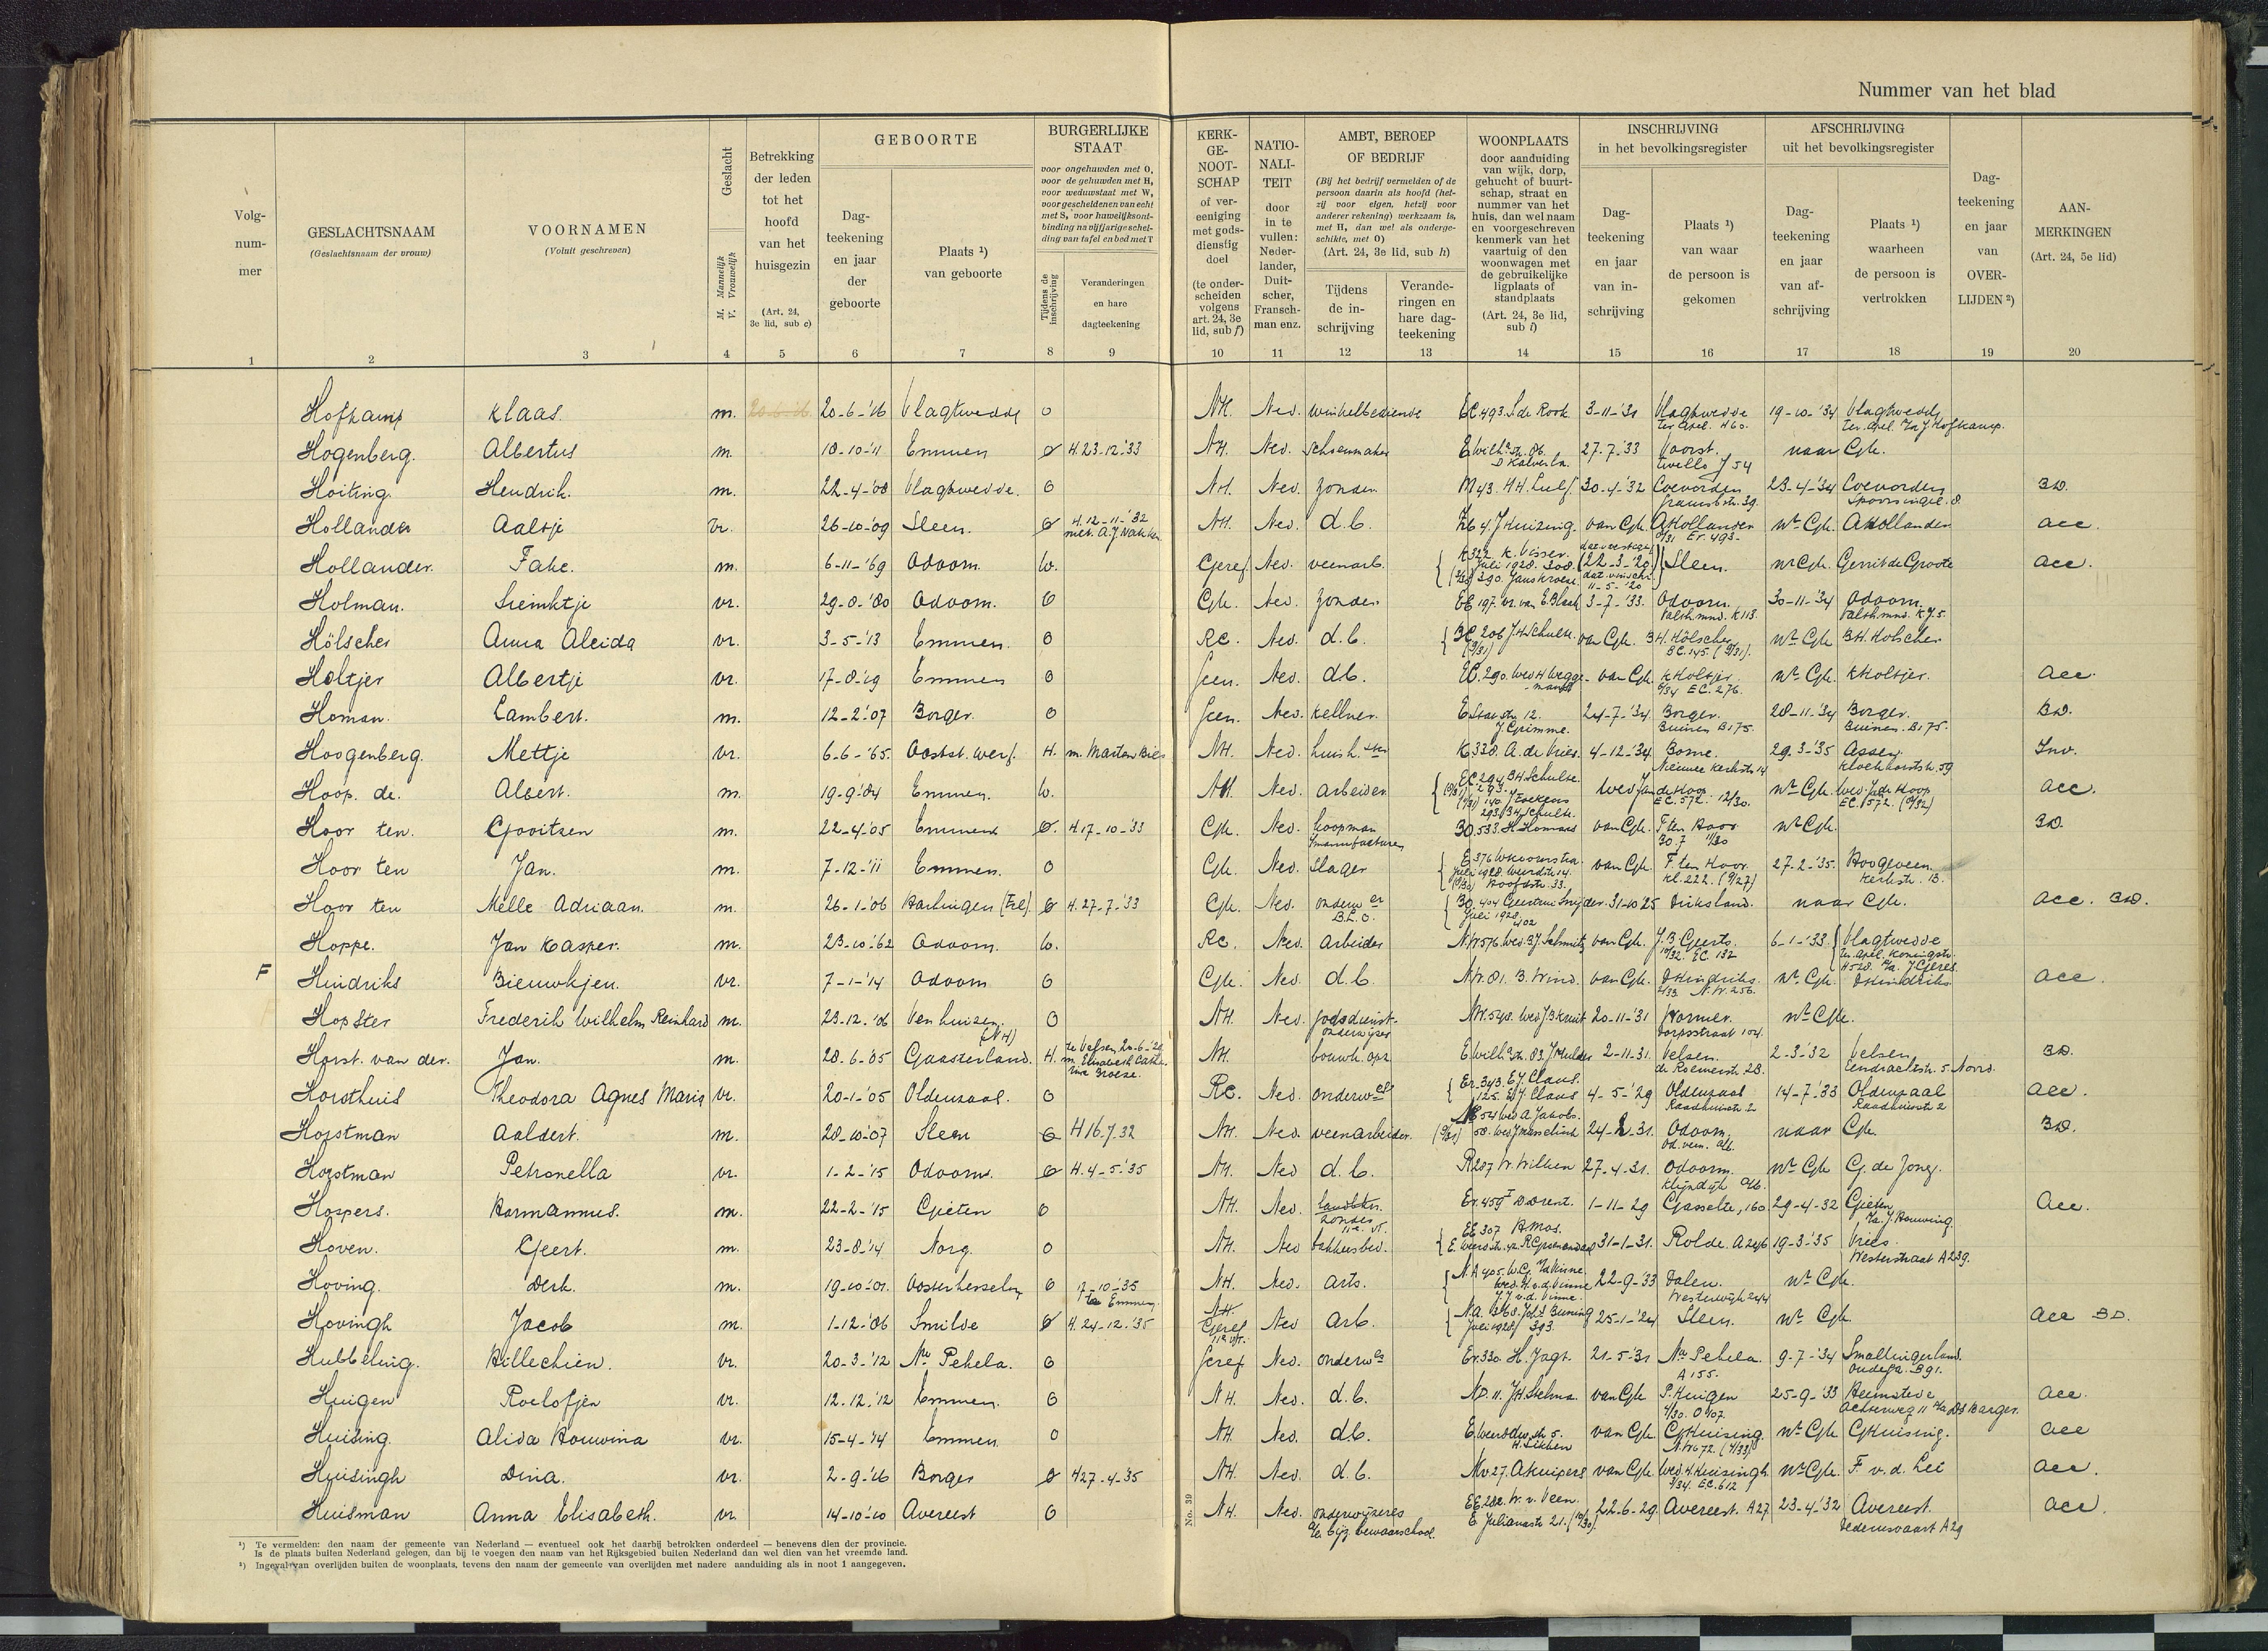 Nummer van het blad
Volg-nummer
GESLACHTSNAAM
(Geslachtsnaam der vrouw)
VOORNAMEN
(Voluit geschreven)
Geslacht
M. Mannelijk
V. Vrouwelijk
Betrekking der leden tot het hoofd van het huisgezin
(Art. 24, 3e lid, sub c)
GEBOORTE
Dag-teekening en jaar der geboorte
Plaats ¹) van geboorte
BURGERLIJKE STAAT
voor ongehuwden met O, voor de gehuwden met H, voor weduwstaat met W, voor gescheidenen van echt met S, voor huwelijksontbinding na vijfjarige scheiding van tafel en bed met T
Tijdens de inschrijving
Veranderingen en hare dagteekening
KERK-GE-NOOT-SCHAP
of vereeniging met godsdienstig doel
(te onderscheiden volgens art. 24, 3e lid, sub f)
NATIO-NALI-TEIT
door in te vullen: Nederlander, Duitscher, Franschman enz.
AMBT, BEROEP OF BEDRIJF
(Bij het bedrijf vermelden of de persoon daarin als hoofd (hetzij voor eigen, hetzij voor anderer rekening) werkzaam is, met H, dan wel als ondergeschikte, met O)
(Art. 24, 3e lid, sub h)
Tijdens de in-schrijving
Verande-ringen en hare dag-teekening
WOONPLAATS
door aanduiding van wijk, dorp, gehucht of buurtschap, straat en nummer van het huis, dan wel naam en voorgeschreven kenmerk van het vaartuig of den woonwagen met de gebruikelijke ligplaats of standplaats
(Art. 24, 3e lid, sub i)
INSCHRIJVING in het bevolkingsregister
Dag-teekening en jaar van in-schrijving
Plaats ¹) van waar de persoon is gekomen
AFSCHRIJVING uit het bevolkingsregister
Dag-teekening en jaar van af-schrijving
Plaats ¹) waarheen de persoon is vertrokken
Dag-teekening en jaar van OVER-LIJDEN ²)
AAN-MERKINGEN
(Art. 24, 5e lid)
1 2 3 4 5 6 7 8 9 10 11 12 13 14 15 16 17 18 19 20
Hofkamp Klaas. m. 20-6-'16 Vlagtwedde O NH. Ned. winkelbediende EC.493. S. de Rook 3-11-'31 Vlagtwedde 19-10-'34 Vlagtwedde
ter Apel. H60. ter Apel. J Hofkamp.
Hogenberg. Albertus m. 18-10-'11 Emmen O H. 23-12-'33 NH. Ned. Schoenmaker E Wilh. str. 86. 27-7-'33 Voorst. naar Gk.
Twello J 54
Hoiting. Hendrik. m. 22-4-'08 Vlagtwedde. O NH. Ned. zonder M43. HH. Luls 30-4-'32 Coevorden 23-4-'34 Coevorden BD.
Hollander Aaltje vr. 26-10-'09 Sleen. O H. 12-11-'32 NH. Ned. d.b. J Huizing. van Gk. A Hollander nr Gk. A Hollander acc.
Hollander. Fake. m. 6-11-'69 Odoorn. W. Geref Ned. veenarb. K322. K. Visser. 22-3-'20 Sleen. nr Gk. Gerrit de Groote acc.
Juli 1928. 308.
11-5-'20
Holman. Siemktje vr. 29-8-'80 Odoorn. O Gk. Ned. zonder 3-7-'33. Odoorn. 30-11-'34 Odoorn
Valth.mnd. K113. Valth.mnd. K 75.
Hölscher Anna Aleida vr. 3-5-'13 Emmen. O RC. Ned. d.b. BC 206 J.H. Schulte. van Gk. BH. Hölscher nr Gk BH. Holscher
BC.145
Holtjer Albertje vr. 17-8-'19 Emmen O Geen. Ned. d.b. EC. 290. Wed H Wegge-mans van Gk. K Holtjer. nr Gk. K Holtjer. acc.
EC. 276.
Homan. Lambert. m. 12-2-'07 Borger. O Geen. Ned. Kellner. 24-7-'34 Borger. 28-11-'34 Borger. BD.
J. Grimme. Buinen B175. Buinen. B175.
Hoogenberg. Mettje vr. 6-6-'65. Ooststwerf. H. m. Marten Bies NH. Ned. huish.ster K.338. A. de Vries 4-12-'34 Borne. 29-3-'35 Assen. Inv.
Nieuwe Kerkstr 14 Kloekhorststr. 59
Hoop. de. Albert. m. 19-9-'84 Emmen. W. NH Ned. Arbeider EC 294 BH Schulte. wed Jan de Hoop nr Gk. wed. J. de Hoop acc.
EC. 572. 12/30. EC. 572.
Hoor ten. Gooitzen m. 22-4-'05 Emmen O. H. 17-10-'33 Gk. Ned. koopman 30.533. H. Homans van Gk. F ten Hoor nr Gk. BD.
manufacturen 30.7
Hoor ten Jan. m. 7-12-'11 Emmen. O Gk. Ned. Slager van Gk. F. ten Hoor. 27-2-'35. Hoogeveen
Hoofdstr. 33. Kl.222. (9/27) Kerkstr. 13.
Hoor ten Melle Adriaan. m. 26-1-'06 Harlingen (Fre). O H. 27-7-'33 Gk. Ned. onderw er 31-10 25 Dirksland. naar Gk. acc. BD.
B.L.O. Juli 1928. 402
Hoppe. Jan Kasper. m. 23-10-'62 Odoorn. W. RC. Ned. arbeider N.W576. Wed. BJ. Schmitz van Gk. J. B Geerts. 6-1-'33. Vlagtwedde
EC 132 Ter Apel. Koningstr.
F Hindriks Bieuwkjen. vr. 7-1-'14 Odoorn O Gk. Ned. d.b. N.W. 81. B. Wind. van Gk. Hindriks. nr Gk. Hindriks acc.
N.W. 256.
Hopster Frederik Wilhelm Reinhard m. 23-12-'06 Venhuizen. (NH) O NH. Ned. godsdienst-onderwijzer NH.548. Wed J B Kruit 20-11-'31 Wormer. nr Gk.
Dorpsstraat 104.
Horst. van der. Jan. m. 28-6-'05 Gaasterland. H. te Velsen 20-6-'28 m. Elisabeth Catharina Broese. NH. bouwk. opz. E Wilh. str. 83. J Mulder 2-11-31. Velsen. 2-3-'32 Velsen BD.
de Roemerstr. 28. Eendrachtstr. 5. Noord.
Horsthuis Theodora Agnes Maria vr. 20-1-'05 Oldenzaal. O RC. Ned. onderw.es Er.343. EJ Claus. 4-5-'29 Oldenzaal 14-7-'33 Oldenzaal acc.
Raadhuisstr 2 Raadhuisstr 2
Horstman Aaldert. m. 28-10-'07 Sleen O H 16-7-32 NH. Ned. veenarbeider. Odoorn. naar Gk. BD.
Horstman Petronella vr. 1-2-'15 Odoorn. O H. 4-5-'35 NH. Ned d.b. R207 W. Wilken 27-4-31. Odoorn. nr Gk G. de Jong.
Hospers. Harmannus. m. 22-2-'15 Gieten O NH. Ned. Er.459 D Drent. 1-11-29 Gasselte, 160 29-4-32 Gieten acc.
zonder J. Houwing.
Hoven. Geert. m. 23-8-'14 Norg. O NH. Ned bakkersbed. EE 307 H Mos. 31-1-31. Rolde. A246 19-3-'35 Vries.
Westerstraat A 239.
Hoving. Derk. m. 19-10-'01. Oosterhesselen O 17-10-'35 te Emmen. NH. Ned. arts. 22-9-'33 Dalen. nr Gk.
J.J v.d. Vinne. Westerwijk 244
Hovingh Jacob m. 1-12-'06 Smilde O H. 24-12-'35 NH. Geref Ned arb. 25-1-'24 Sleen. nr Gk acc BD.
Juli 1928 393.
Hubbeling. Hillechien. vr. 20-3-'12 Ne Pekela. O Geref Ned. onderw.es Er.330. H. Jagt. 21-5-'31 Na Pekela. 9-7-'34 Smallingerland.
A 155. Oudega. B 91.
Huigen Roelofjen vr. 12-12-'12 Emmen. O NH. Ned. d.b. van Gk P. Huigen 25-9-'33 Heemstede acc.
Achterweg 11
Huising. Alida Houwina vr. 15-4-'14 Emmen. O NH. Ned. d.b. van Gk. G Huising nr Gk G Huising. acc
H. Sikken N.W672. (4/33)
Huisingh Dina. vr. 2-9-'16 Borger O H27-4-'35 NH. Ned. d.b. Nv 27. A Kuipers van Gk. Wed. H. Huisingh. nr Gk. F. v.d. Lei acc.
EC.612
Huisman Anna Elisabeth. vr. 14-10-'10 Avereest O NH. Ned. onderwijzeres EE.282. W. v. Veen. 22-6-29. Avereest. A27 23-4-'32 Avereest. acc.
bijz. bewaarschool. E. Julianastr 21. (10/30). Dedemsvaart A29
No. 39
¹) Te vermelden: den naam der gemeente van Nederland — eventueel ook het daarbij betrokken onderdeel — benevens dien der provincie.
Is de plaats buiten Nederland gelegen, dan bij te voegen den naam van het Rijksgebied buiten Nederland dan wel dien van het vreemde land.
²) Ingeval van overlijden buiten de woonplaats, tevens den naam der gemeente van overlijden met nadere aanduiding als in noot 1 aangegeven.